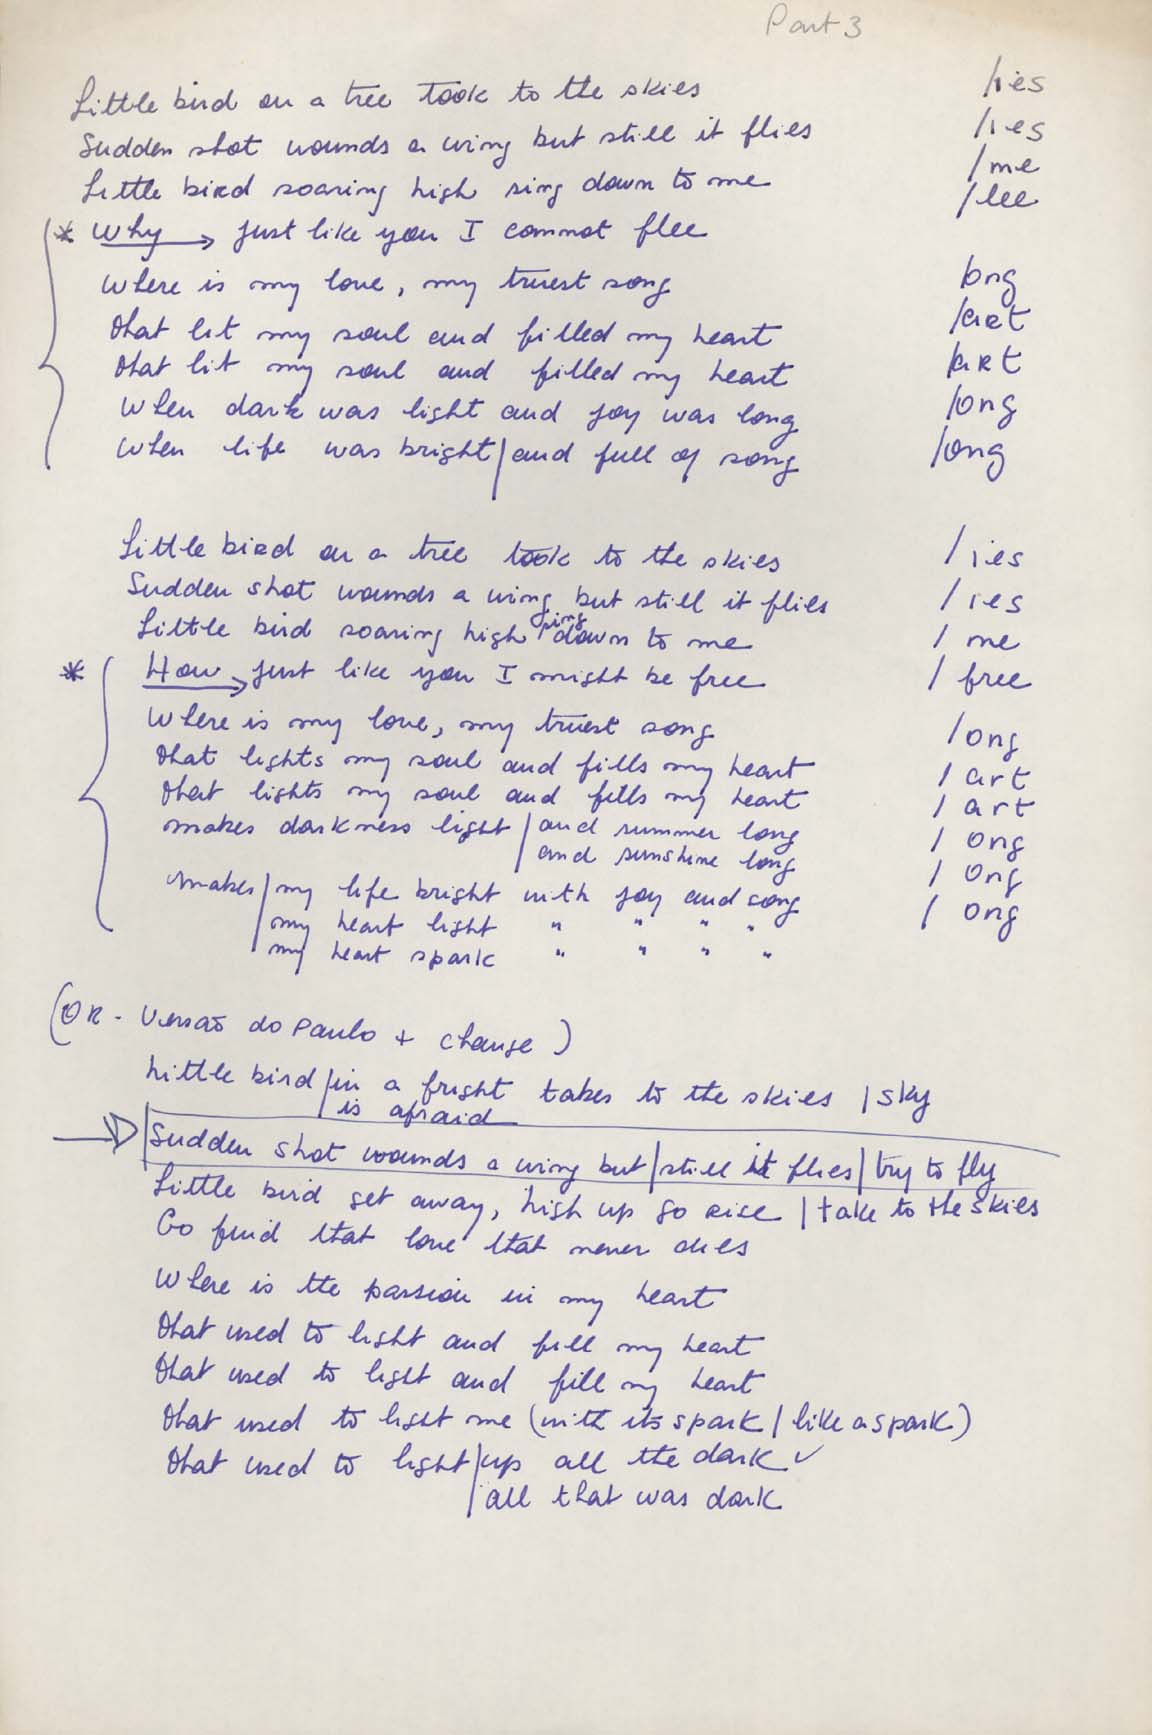 Part 3
Little bird on a tree took to the skies /ies
Sudden shot wounds a wing but still it flies /ies
Little bird soaring high sing down to me /me
* Why → just like you I cannot flee /lee
Where is my love, my truest song /ong
that lit my soul and filled my heart /art
that lit my soul and filled my heart /art
When dark was light and joy was long /ong
When life was bright / and full of song /ong
Little bird on a tree took to the skies / ies
Sudden shot wounds a wing but still it flies / ies
Little bird soaring high sing down to me / me
* How → just like you I might be free / free
Where is my love, my truest song / ong
that lights my soul and fills my heart / art
that lights my soul and fills my heart / art
makes darkness light / and summer long / ong
and sunshine long / ong
makes / my life bright with joy and song / ong
my heart light " " " "
my heart spark " " " "
(OR - Versão do Paulo + change)
Little bird / in a fright takes to the skies / sky
is afraid
→ Sudden shot wounds a wing but / still it flies / try to fly
Little bird get away, high up go rise / take to the skies
Go find that love that never dies
Where is the passion in my heart
that used to light and fill my heart
that used to light and fill my heart
that used to light me (with its spark / like a spark)
that used to light / up all the dark ✓
all that was dark